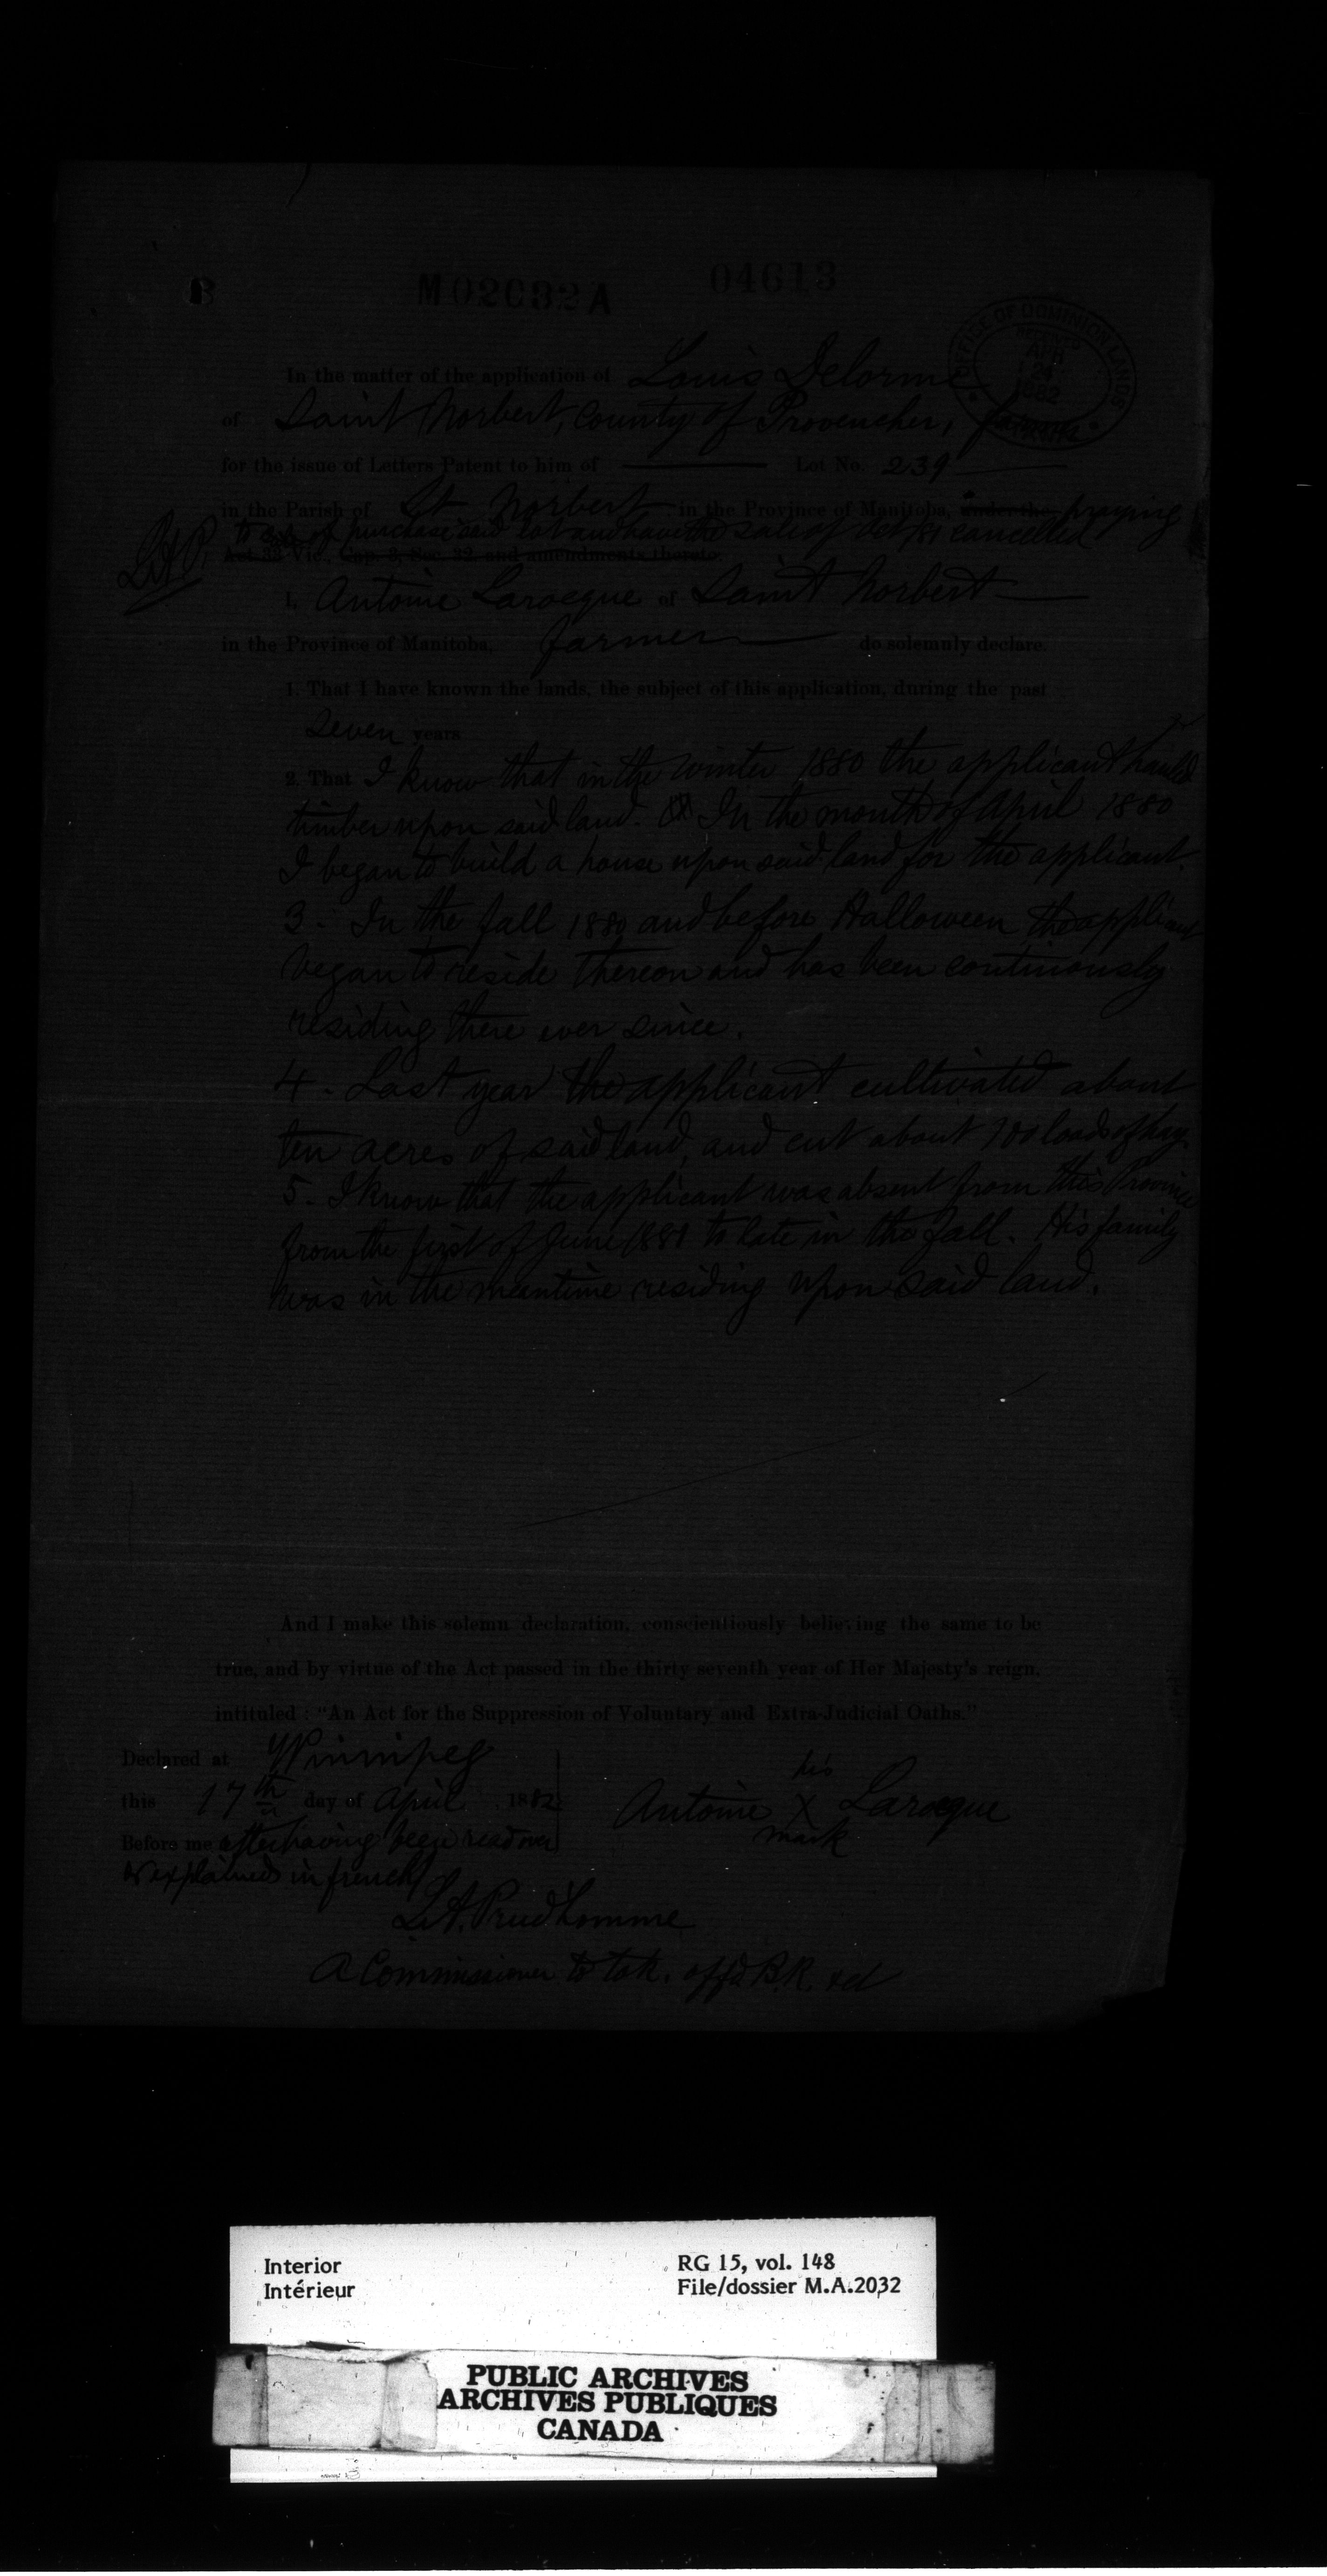 B M02032A 04613
OFFICE OF DOMINION LANDS
RECEIVED
APR
24
1882
In the matter of the application of Louis Delorme
of Saint Norbert, County of Provencher, farmer
for the issue of Letters Patent to him of Lot No. 239
in the Parish of St Norbert in the Province of Manitoba, under the praying
to purchase said lot and have the sale of Oct/81 cancelled
L.A.P.
Act 33 Vic., Cap. 3, Sec. 32, and amendments thereto.
I, Antoine Larocque of Saint Norbert
in the Province of Manitoba, farmer do solemnly declare.
1. That I have known the lands, the subject of this application, during the past
seven years
2. That I know that in the winter 1880 the applicant hauled
timber upon said land. In the month of April 1880
I began to build a house upon said land for the applicant.
3. In the fall 1880 and before Halloween the applicant
began to reside thereon and has been continously
residing there ever since.
4. Last year the applicant cultivated about
ten acres of said land, and cut about 100 loads of hay.
5. I know that the applicant was absent from this Province
from the first of June 1881 to late in the fall. His family
was in the meantime residing upon said land.
And I make this solemn declaration, conscientiously believing the same to be
true, and by virtue of the Act passed in the thirty seventh year of Her Majesty's reign,
intituled: "An Act for the Suppression of Voluntary and Extra-Judicial Oaths."
Declared at Winnipeg
this 17th day of April 1882
Before me after having been read over
& explained in french
his
Antoine X Larocque
mark
L.A. Prud'homme
A Commissioner to tak. affd B.R. &c
Interior
Intérieur
RG 15, vol. 148
File/dossier M.A.2032
PUBLIC ARCHIVES
ARCHIVES PUBLIQUES
CANADA